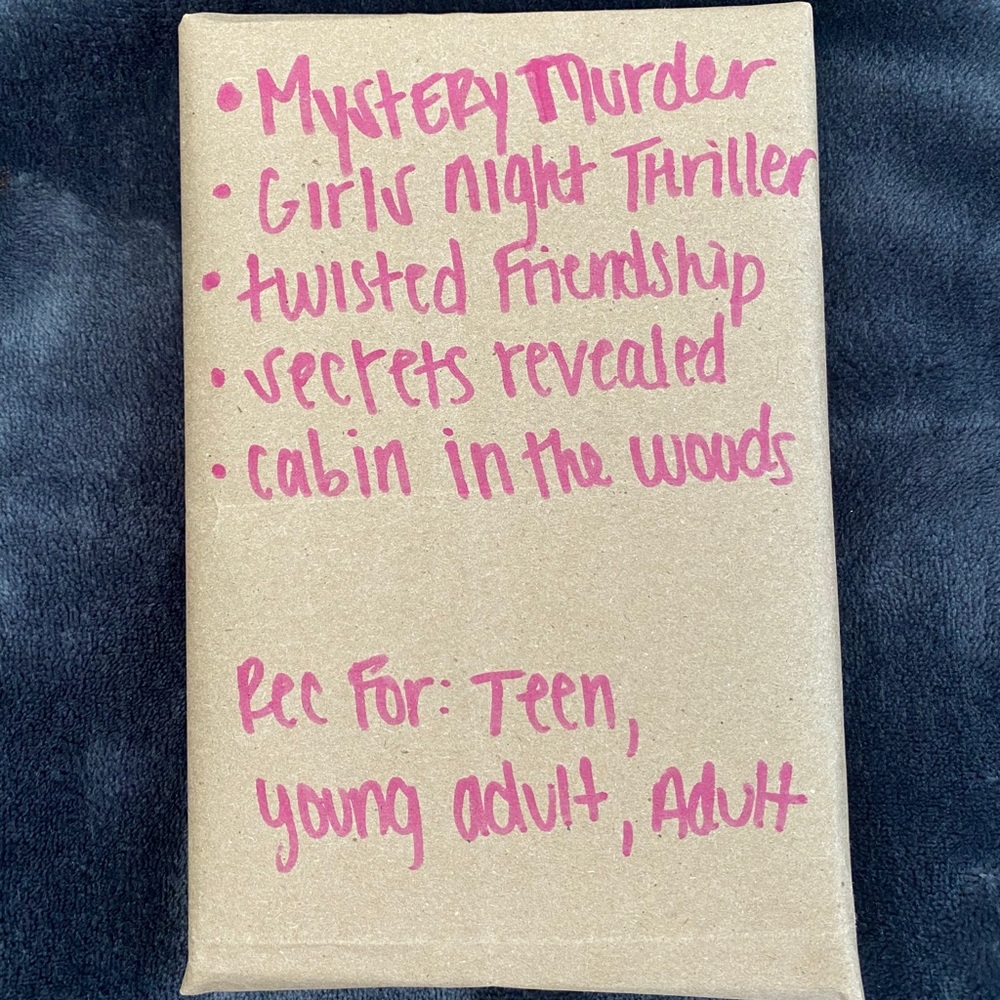 • Mystery Murder
• Girls night Thriller
• twisted Friendship
• secrets revealed
• cabin in the woods
Rec For: Teen,
young adult, Adult